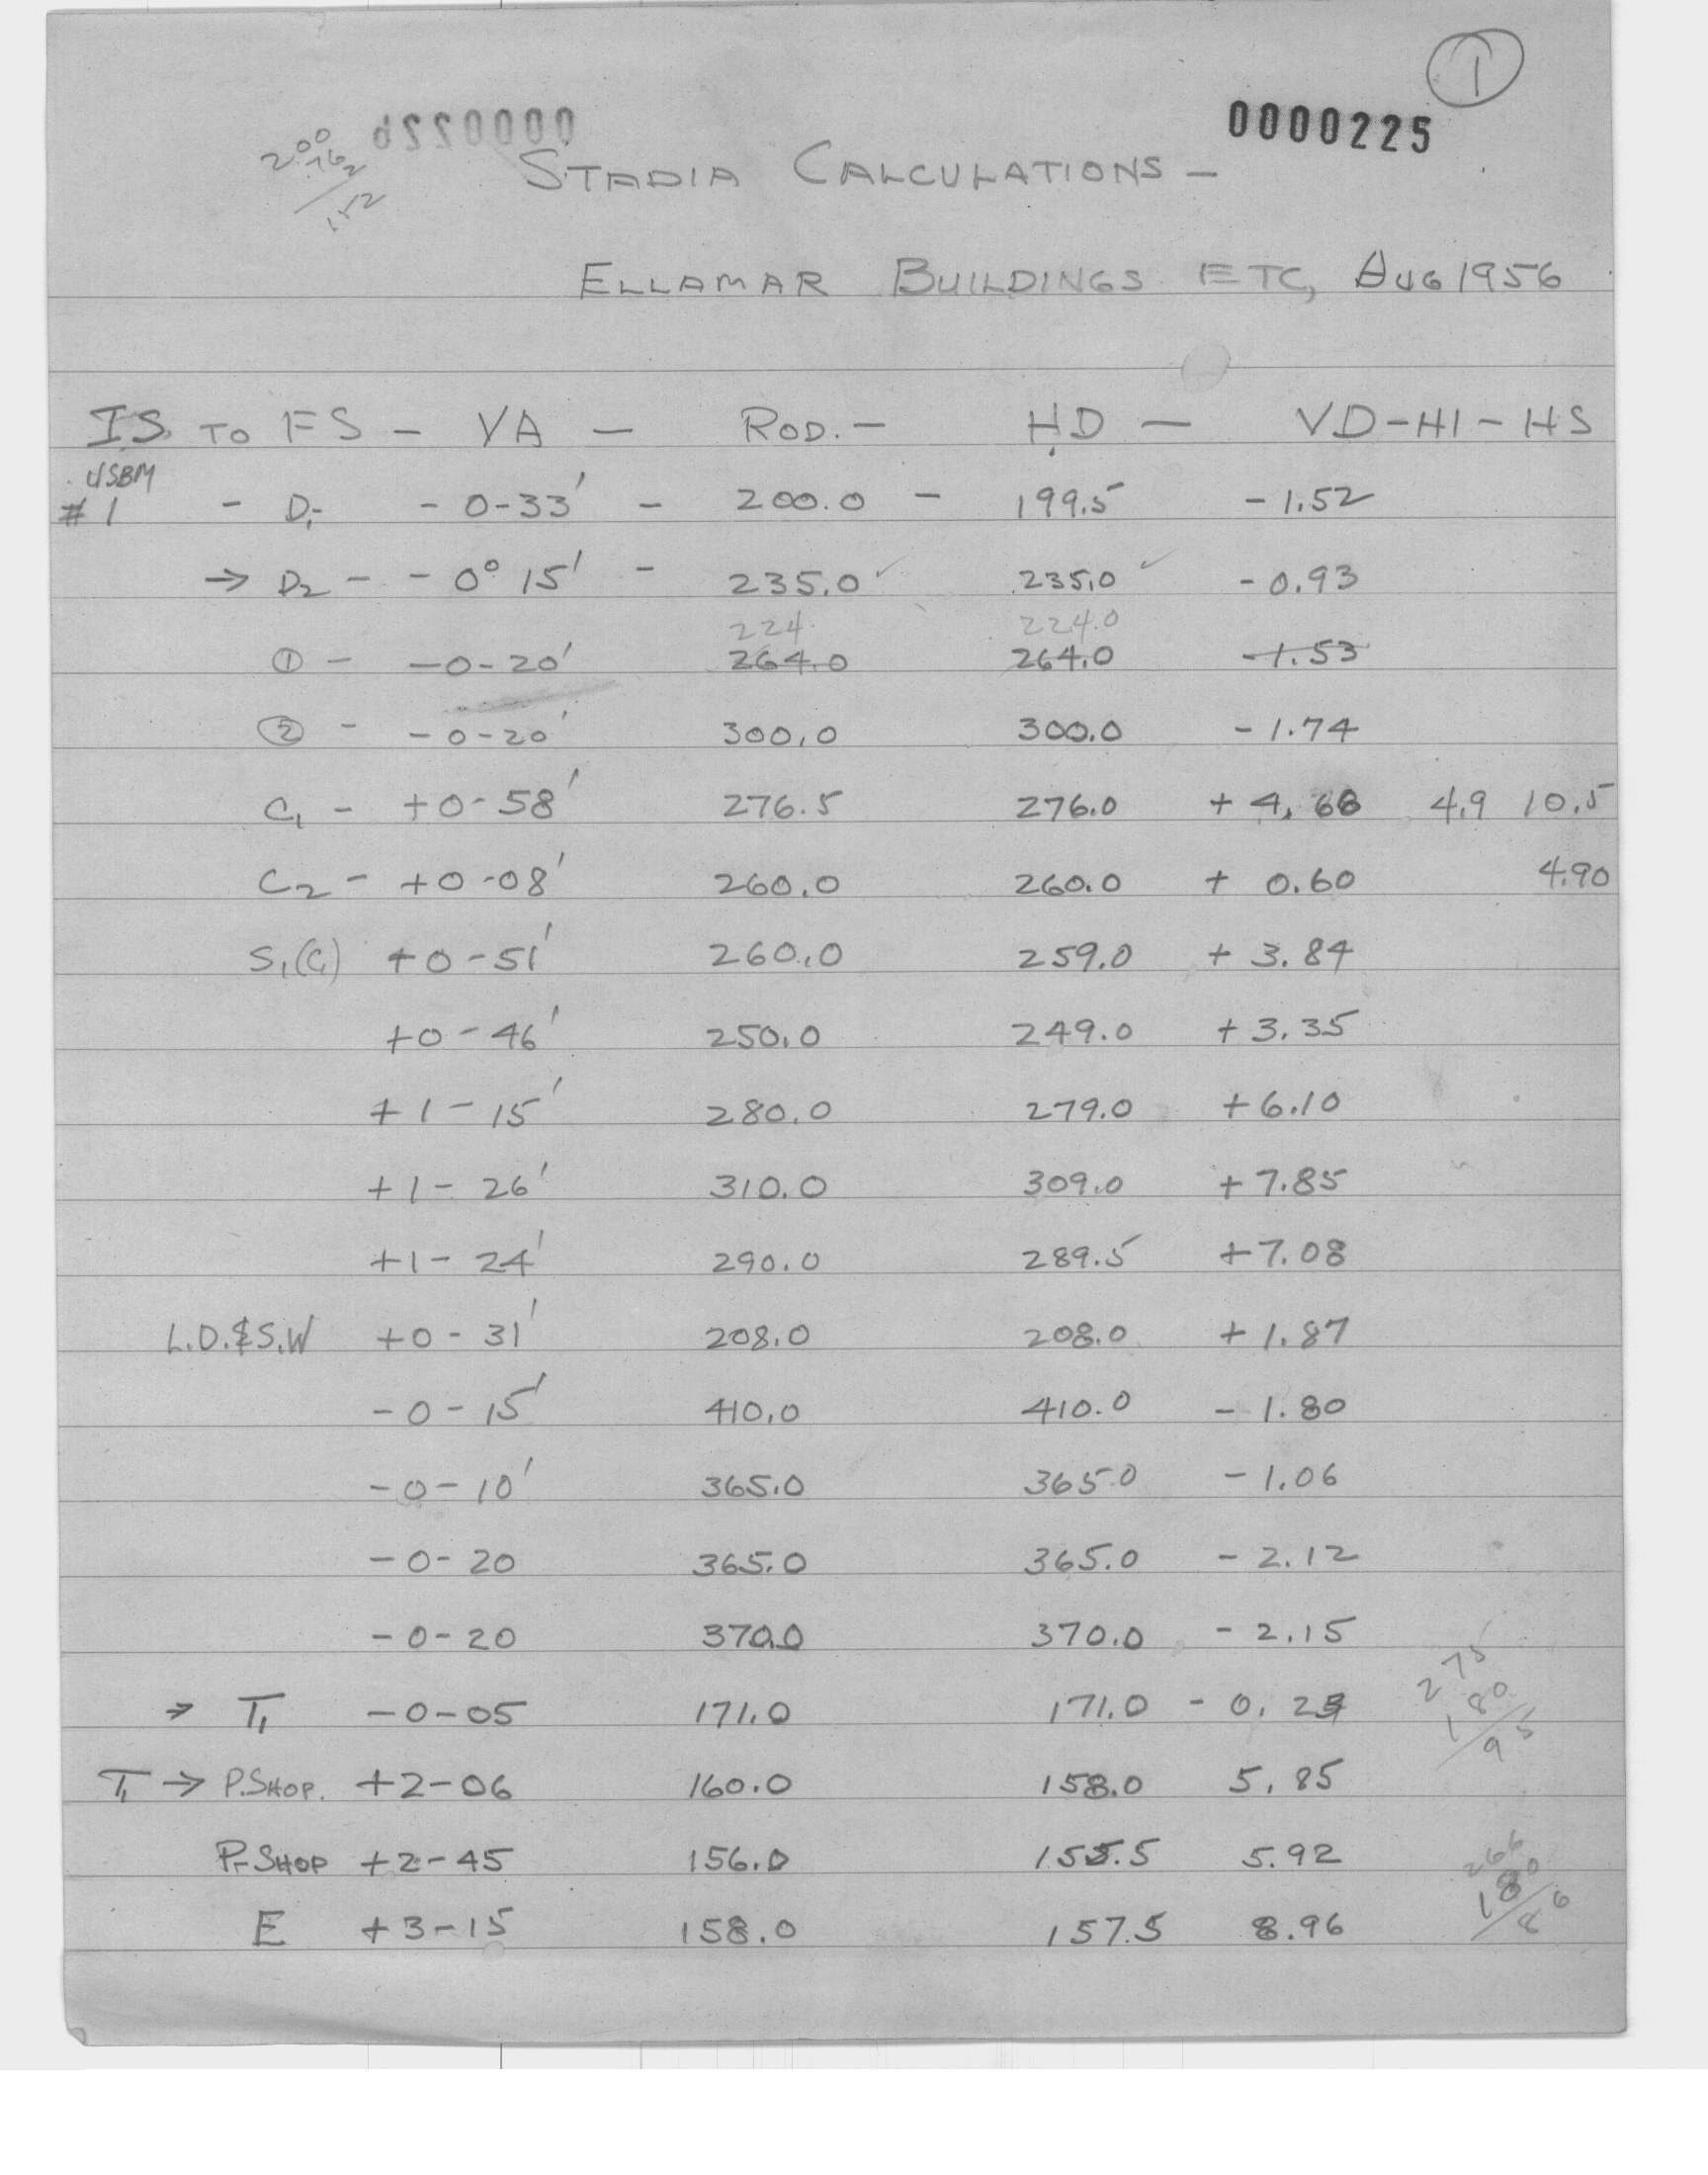 1
0000225
200
.762
152
STADIA CALCULATIONS -
ELLAMAR BUILDINGS ETC, AUG 1956
IS TO FS - VA - ROD. - HD - VD-HI-HS
USBM
#1 - D1 - - 0-33' - 200.0 - 199.5 - 1.52
→ D2 - - 0° 15' - 235.0 ✓ 235.0 ✓ - 0.93
224. 224.0
① - -0-20' 264.0 264.0 -1.53
② - -0-20' 300.0 300.0 - 1.74
C1 - +0-58' 276.5 276.0 + 4.66 4.9 10.5
C2 - +0-08' 260.0 260.0 + 0.60 4.90
S1(C1) +0-51' 260.0 259.0 + 3.84
+0-46' 250.0 249.0 + 3.35
+1-15' 280.0 279.0 +6.10
+1-26' 310.0 309.0 +7.85
+1-24' 290.0 289.5 +7.08
L.D.&S.W +0-31' 208.0 208.0 + 1.87
-0-15' 410.0 410.0 - 1.80
-0-10' 365.0 365.0 - 1.06
-0-20 365.0 365.0 - 2.12
-0-20 370.0 370.0 - 2.15
→ T1 -0-05 171.0 171.0 - 0.24
275
180
95
T1 → P.SHOP. +2-06 160.0 158.0 5.85
P-SHOP +2-45 156.0 155.5 5.92
266
180
86
E +3-15 158.0 157.5 8.96